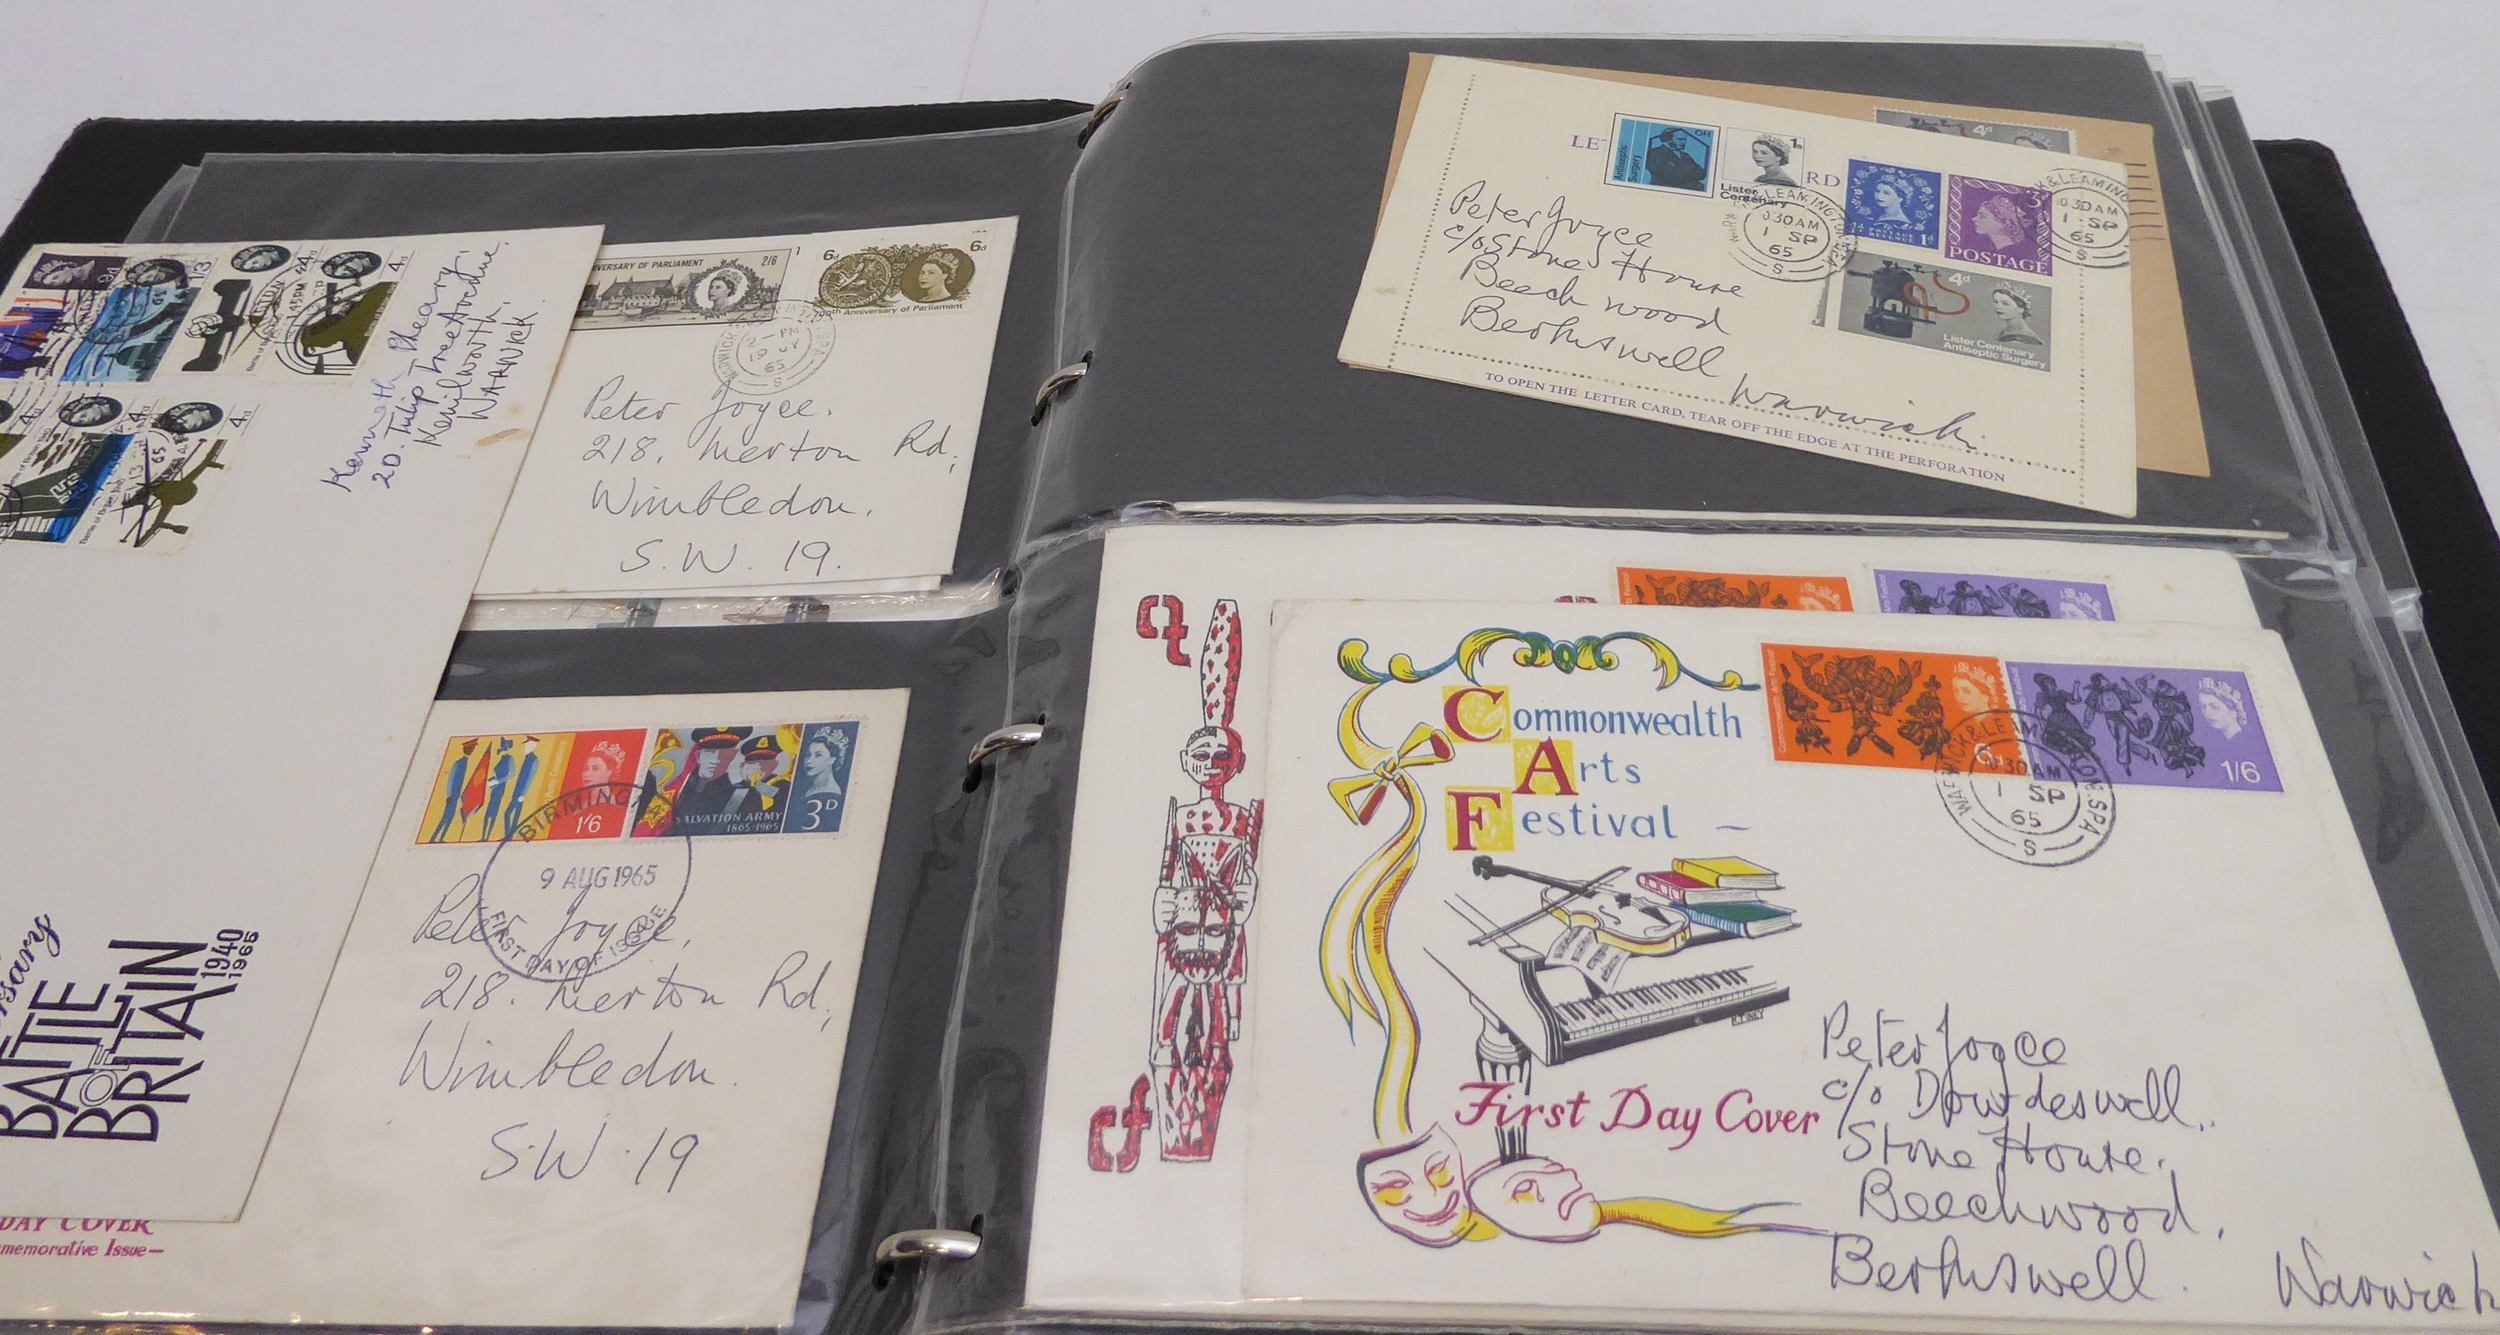 3d
1/3
4d
4d
4d
4d
4d
Kenneth Pheary.
20. Tulip Tree Avenue.
Kenilworth,
WARWICK.
BATTLE
OF
BRITAIN
1940
1965
DAY COVER
memorative Issue—
VERSARY OF PARLIAMENT 2/6
6d 6d
700th Anniversary of Parliament
2 - PM
19 JY
65
S
Peter Joyce.
218. Merton Rd,
Wimbledon.
S.W. 19.
1'6
SALVATION ARMY
1865-1965
3D
BIRMINGHA
9 AUG 1965
FIRST DAY OF ISSUE
Peter Joyce,
218. Merton Rd,
Wimbledon.
S.W. 19
4d
LE RD
Antiseptic
Surgery
OH
1s
Lister
Centenary
1d
3d
POSTAGE
LEAMINGTON SPA
1030AM
1 SP
65
S
K & LEAMING
1030AM
1 SP
65
S
4d
Lister Centenary
Antiseptic Surgery
Peter Joyce
c/o Stone House
Beech wood
Berkswell
Warwick.
TO OPEN THE LETTER CARD, TEAR OFF THE EDGE AT THE PERFORATION
Commonwealth
Arts
Festival –
Commonwealth Arts Festival
6d
1/6
WARWICK & LEAMINGTON SPA
1030AM
1 SP
65
S
First Day Cover
Peter Joyce
c/o Dowdeswell,
Stone House.
Beechwood,
Berkswell. Warwick